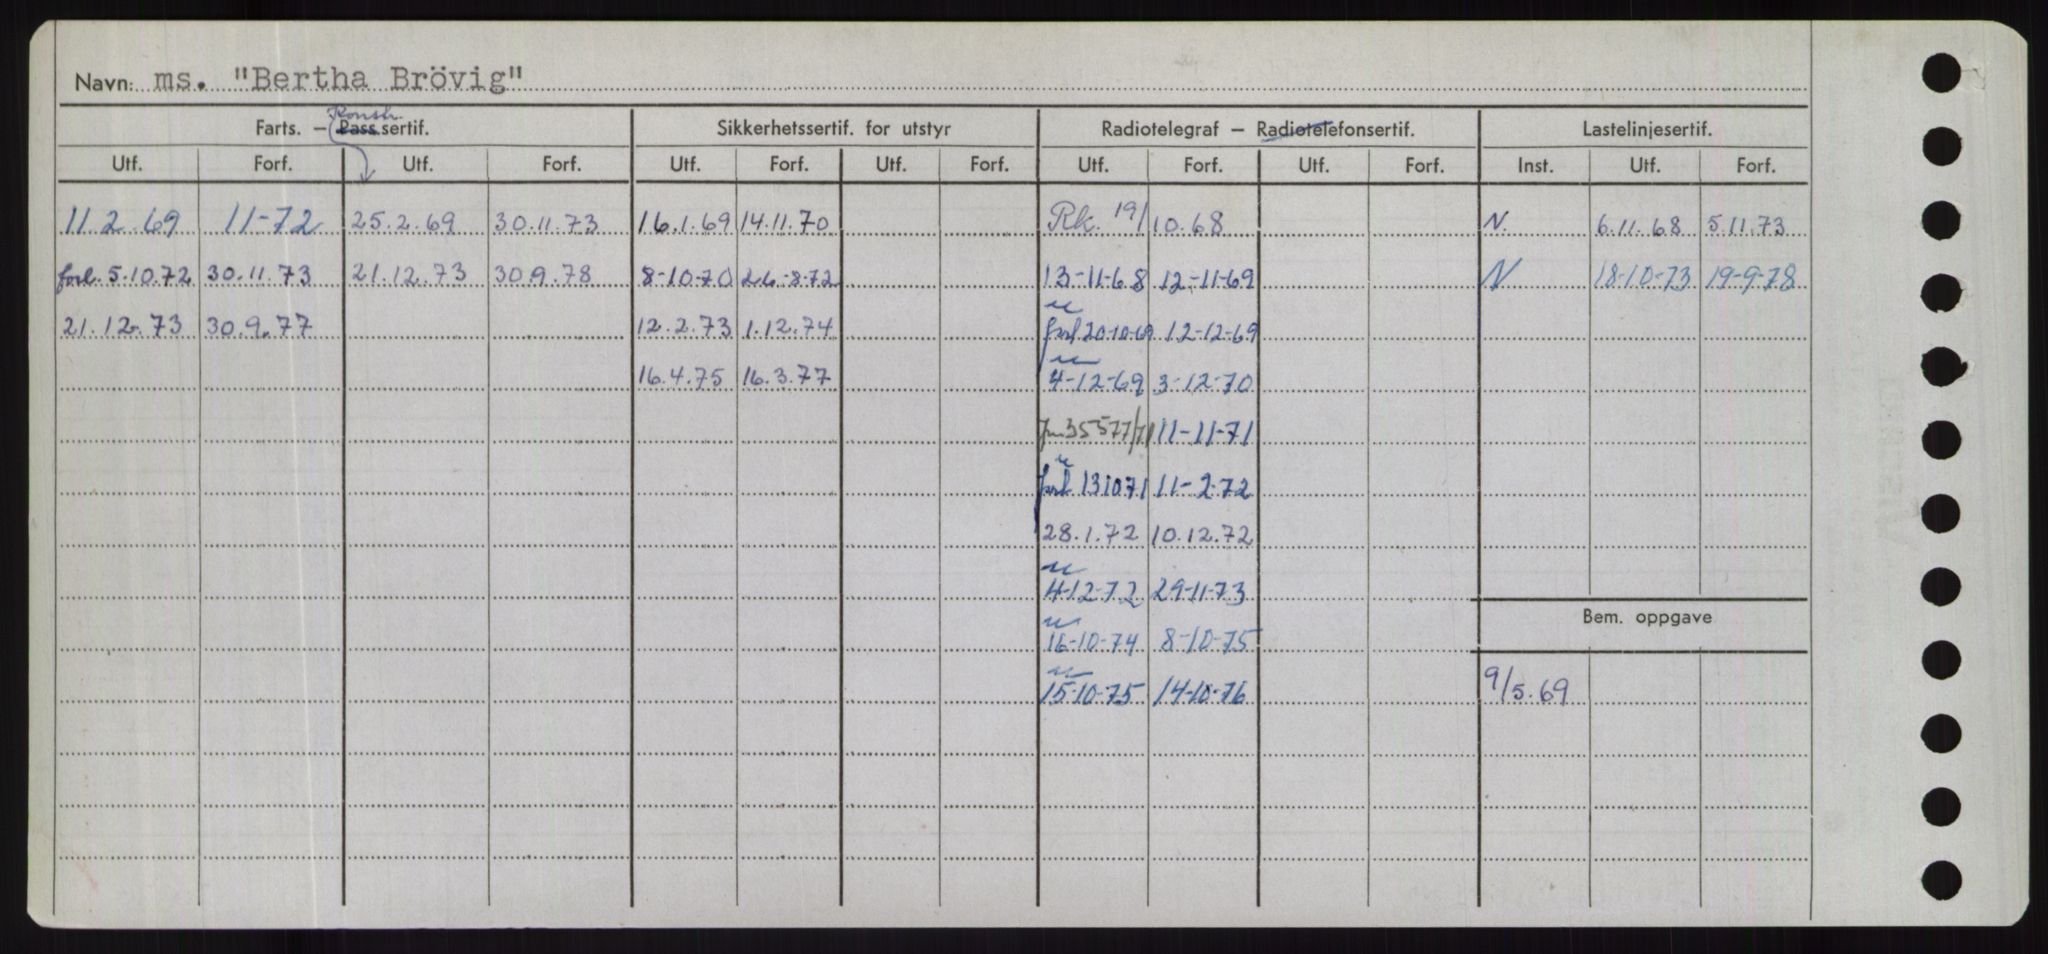 Navn: ms. "Bertha Brövig"
Konstr.
Farts. – Pass.sertif. Sikkerhetssertif. for utstyr Radiotelegraf – Radiotelefonsertif. Lastelinjesertif.
Utf. Forf. Utf. Forf. Utf. Forf. Utf. Forf. Utf. Forf. Utf. Forf. Inst. Utf. Forf.
11.2.69 11-72 25.2.69 30.11.73 16.1.69 14.11.70 Rk. 19/10.68 N. 6.11.68 5.11.73
forl. 5.10.72 30.11.73 21.12.73 30.9.78 8-10-70 26-8-72 13-11-68 12-11-69 N 18-10-73 19-9-78
21.12.73 30.9.77 12.2.73 1.12.74 forl 20-10-69 12-12-69
16.4.75 16.3.77 4-12-69 3-12-70
35577/71 11-11-71
forl 131071 11-2-72
28.1.72 10.12.72
4-12-72 29-11-73
Bem. oppgave
16-10-74 8-10-75
15-10-75 14-10-76 9/5.69